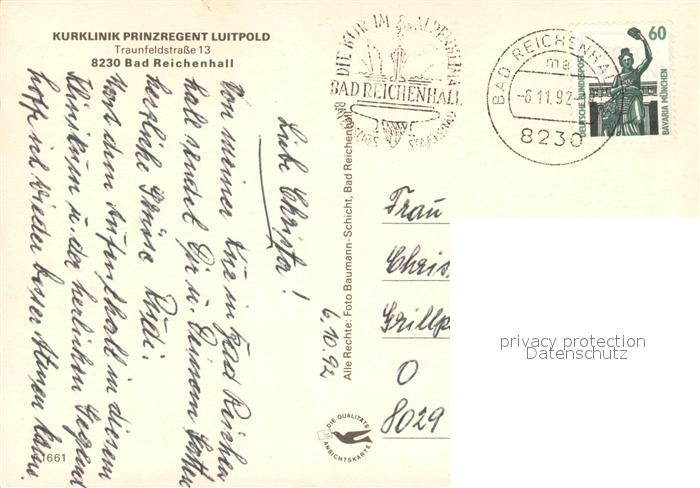 KURKLINIK PRINZREGENT LUITPOLD
Traunfeldstraße 13
8230 Bad Reichenhall
6.10.92
Liebe Christa!
Von meiner Kur in Bad Reichen
hall sendet Dir u. Deinem
herzliche Grüsse Rudi.
Nach dem Aufenthalt in diesem
Klinikum u. der herlichen Gegend
hoffe ich wieder besser Atmen kann.
1661
Alle Rechte: Foto Baumann-Schicht, Bad Reichenhall
DIE QUALITÄTS
ANSICHTSKARTE
DIE KUR IM ALPENKLIMA
BAD REICHENHALL
BAYERISCHES STAATSBAD
BAD REICHENHALL
ma
-6.11.92
8230
60
DEUTSCHE BUNDESPOST
BAVARIA MÜNCHEN
Frau
Chris
Grillp
O
8029
privacy protection
Datenschutz